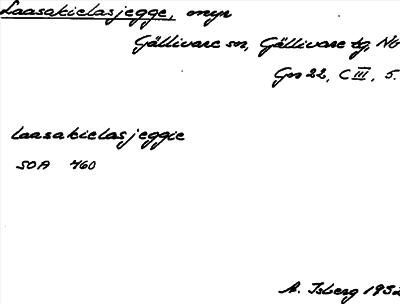 Laasakielasjegge, myr
Gällivare sn, Gällivare tg, Nb
Gn 22, C III, 5.
laasakielasjeggie
SOA 460
A. Isberg 1932